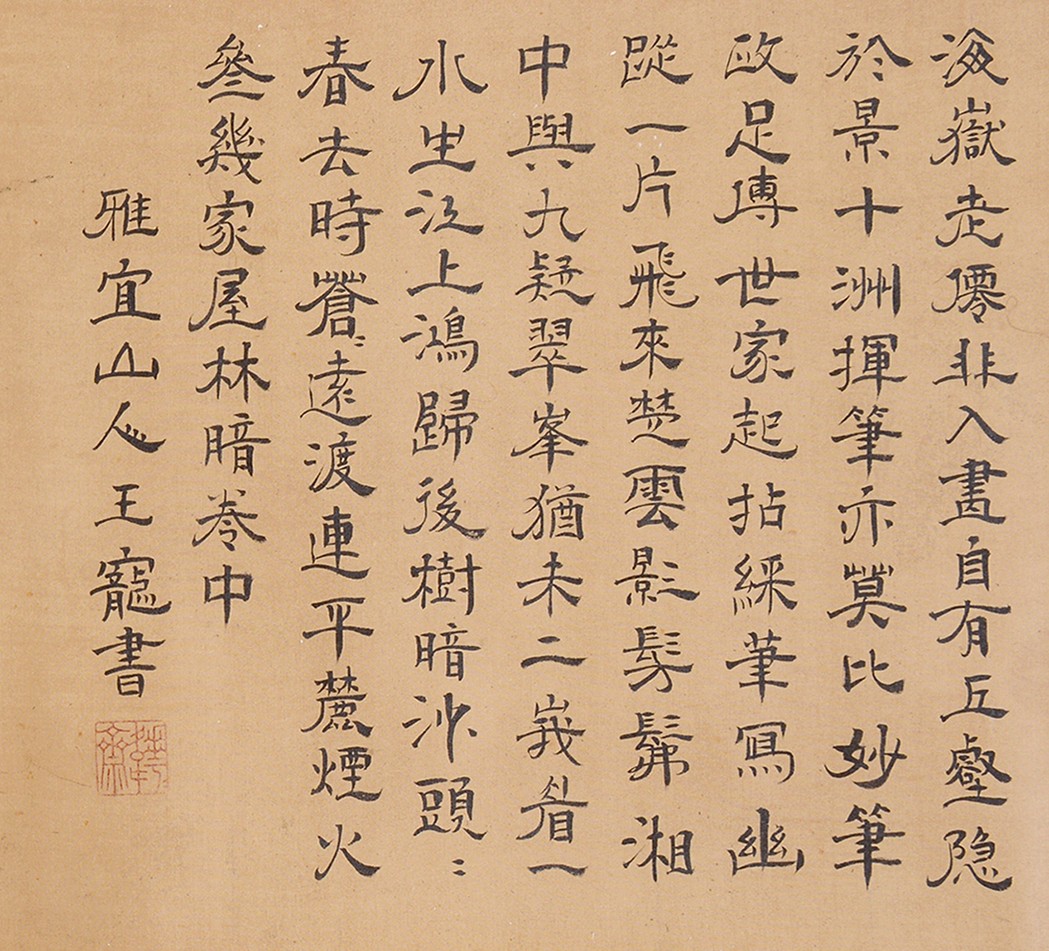 海嶽走僊非入畫自有丘壑隐
於景十洲揮筆亦莫比妙筆
政足傳世家起拈綵筆寫幽
蹤一片飛來楚雲影髣髴湘
中與九疑翠峯猶未二峩眉一
水生江上鴻歸後樹暗沙頭〻
春去時蒼〻遠渡連平麓煙火
叄幾家屋林暗巻中
雅宜山人王寵書